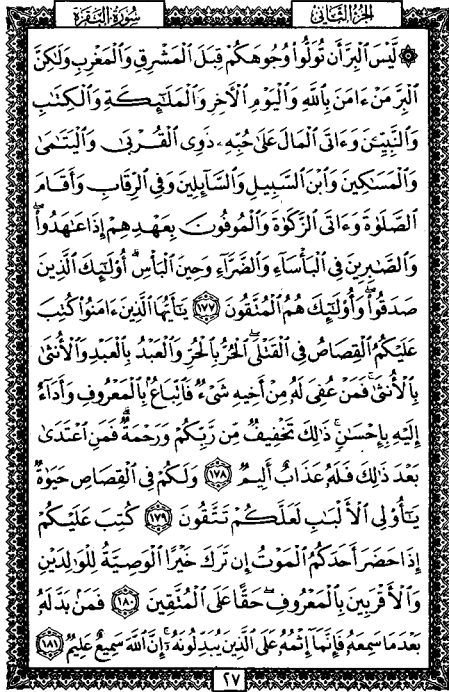 الجزء الثاني سورة البقرة
۞ لَّيْسَ الْبِرَّ أَن تُوَلُّوا وُجُوهَكُمْ قِبَلَ الْمَشْرِقِ وَالْمَغْرِبِ وَلَٰكِنَّ
الْبِرَّ مَنْ ءَامَنَ بِاللَّهِ وَالْيَوْمِ الْأَخِرِ وَالْمَلَٰٓئِكَةِ وَالْكِتَٰبِ
وَالنَّبِيِّۦنَ وَءَاتَى الْمَالَ عَلَىٰ حُبِّهِۦ ذَوِى الْقُرْبَىٰ وَالْيَتَٰمَىٰ
وَالْمَسَٰكِينَ وَابْنَ السَّبِيلِ وَالسَّآئِلِينَ وَفِى الرِّقَابِ وَأَقَامَ
الصَّلَوٰةَ وَءَاتَى الزَّكَوٰةَ وَالْمُوفُونَ بِعَهْدِهِمْ إِذَا عَٰهَدُوا ۖ
وَالصَّٰبِرِينَ فِى الْبَأْسَآءِ وَالضَّرَّآءِ وَحِينَ الْبَأْسِ ۗ أُولَٰٓئِكَ الَّذِينَ
صَدَقُوا ۖ وَأُولَٰٓئِكَ هُمُ الْمُتَّقُونَ ١٧٧ يَٰٓأَيُّهَا الَّذِينَ ءَامَنُوا كُتِبَ
عَلَيْكُمُ الْقِصَاصُ فِى الْقَتْلَى ۖ الْحُرُّ بِالْحُرِّ وَالْعَبْدُ بِالْعَبْدِ وَالْأُنثَىٰ
بِالْأُنثَىٰ ۚ فَمَنْ عُفِىَ لَهُۥ مِنْ أَخِيهِ شَىْءٌ فَاتِّبَاعٌۢ بِالْمَعْرُوفِ وَأَدَآءٌ
إِلَيْهِ بِإِحْسَٰنٍ ۗ ذَٰلِكَ تَخْفِيفٌ مِّن رَّبِّكُمْ وَرَحْمَةٌ ۗ فَمَنِ اعْتَدَىٰ
بَعْدَ ذَٰلِكَ فَلَهُۥ عَذَابٌ أَلِيمٌ ١٧٨ وَلَكُمْ فِى الْقِصَاصِ حَيَوٰةٌ
يَٰٓأُولِى الْأَلْبَٰبِ لَعَلَّكُمْ تَتَّقُونَ ١٧٩ كُتِبَ عَلَيْكُمْ
إِذَا حَضَرَ أَحَدَكُمُ الْمَوْتُ إِن تَرَكَ خَيْرًا الْوَصِيَّةُ لِلْوَٰلِدَيْنِ
وَالْأَقْرَبِينَ بِالْمَعْرُوفِ ۖ حَقًّا عَلَى الْمُتَّقِينَ ١٨٠ فَمَنۢ بَدَّلَهُۥ
بَعْدَ مَا سَمِعَهُۥ فَإِنَّمَآ إِثْمُهُۥ عَلَى الَّذِينَ يُبَدِّلُونَهُۥٓ ۚ إِنَّ اللَّهَ سَمِيعٌ عَلِيمٌ ١٨١
٢٧